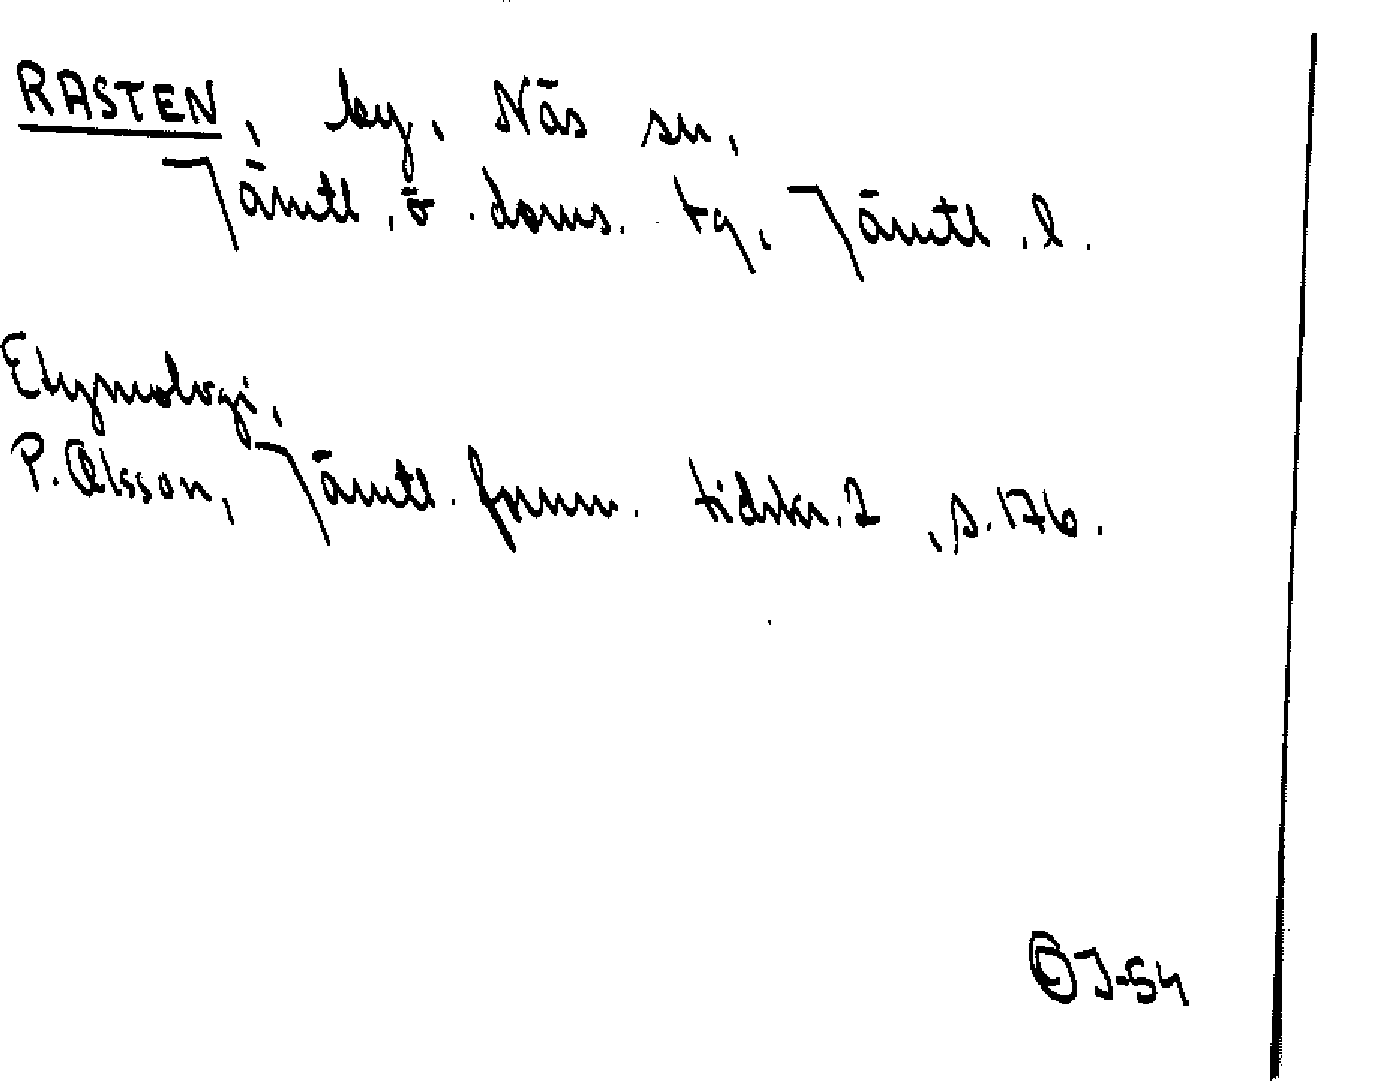 RASTEN, by, Näs sn,
Jämtl. ö. doms. tg, Jämtl. l.
Etymologi,
P. Olsson, Jämtl. fornm. tidskr. 2, s. 176.
OJ-54